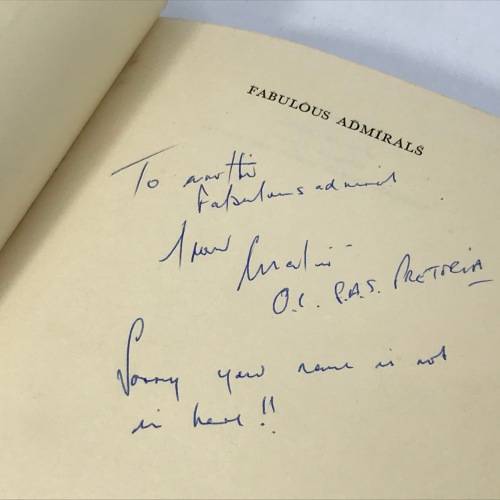 FABULOUS ADMIRALS
To another
Fabulous admiral
from
O.C. P.A.S. PRETORIA
Sorry your name is not
in here!!